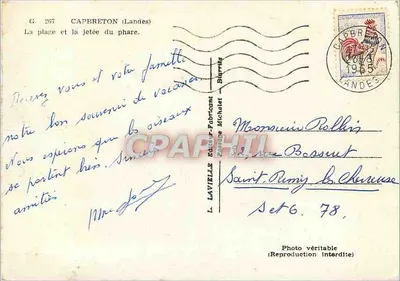 G. 267 CAPBRETON (Landes)
La plage et la jetée du phare.
Recevez vous et votre famille
notre bon souvenir de vacances
Nous espérons que les oiseaux
se portent bien. Sincères
amitiés
L. LAVIELLE Editeur-Fabricant - Biarritz
Michelet
CAPBRETON
1965
LANDES
Monsieur Rollin
rue Bossuet
Saint Remy les Chevreuse
Set O. 78.
Photo véritable
(Reproduction interdite)
CPAPHIL